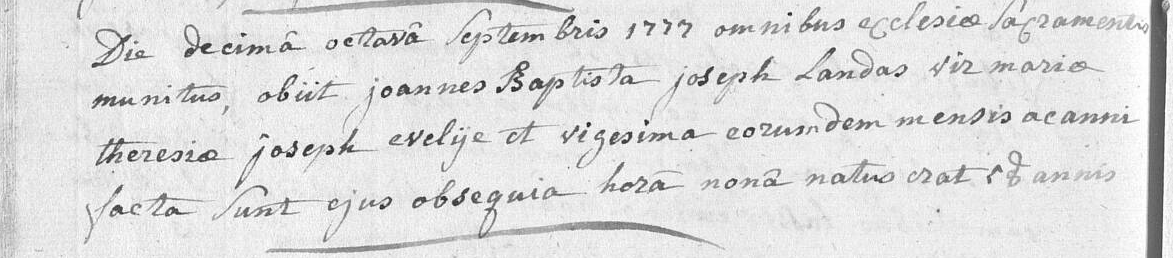 Die decimâ octavâ Septembris 1777 omnibus ecclesiæ Sacramentis
munitus, obiit joannes Baptista joseph Landas vir mariæ
theresiæ joseph evelije et vigesima eorumdem mensis ac anni
facta Sunt ejus obsequia horâ nonâ natus erat annis